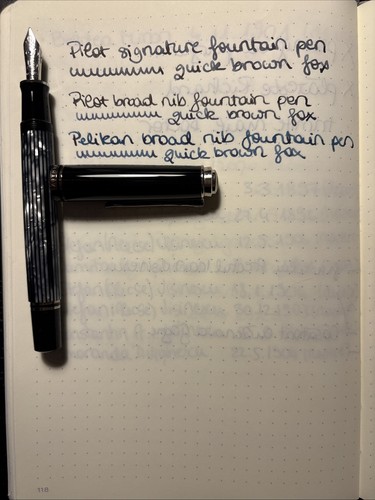 Pilot signature fountain pen
quick brown fox
Pilot broad nib fountain pen
quick brown fox
Pelikan broad nib fountain pen
quick brown fox
118